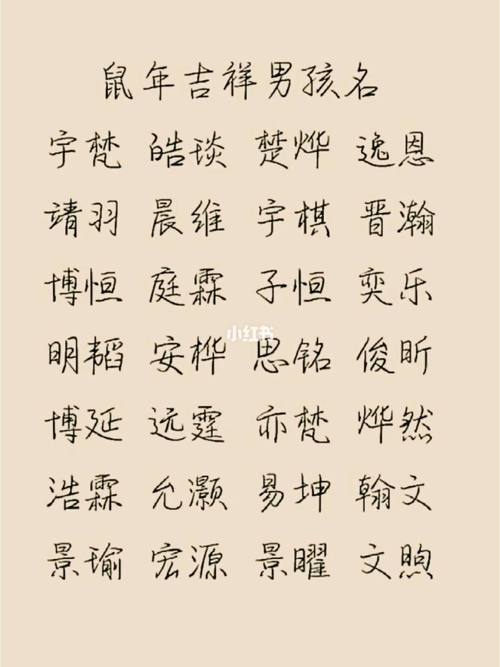 鼠年吉祥男孩名
宇梵 皓琰 楚烨 逸恩
靖羽 晨维 宇棋 晋瀚
博恒 庭霖 子恒 奕乐
小红书
明韬 安桦 思铭 俊昕
博延 远霆 亦梵 烨然
浩霖 允灏 易坤 翰文
景瑜 宏源 景曜 文煦